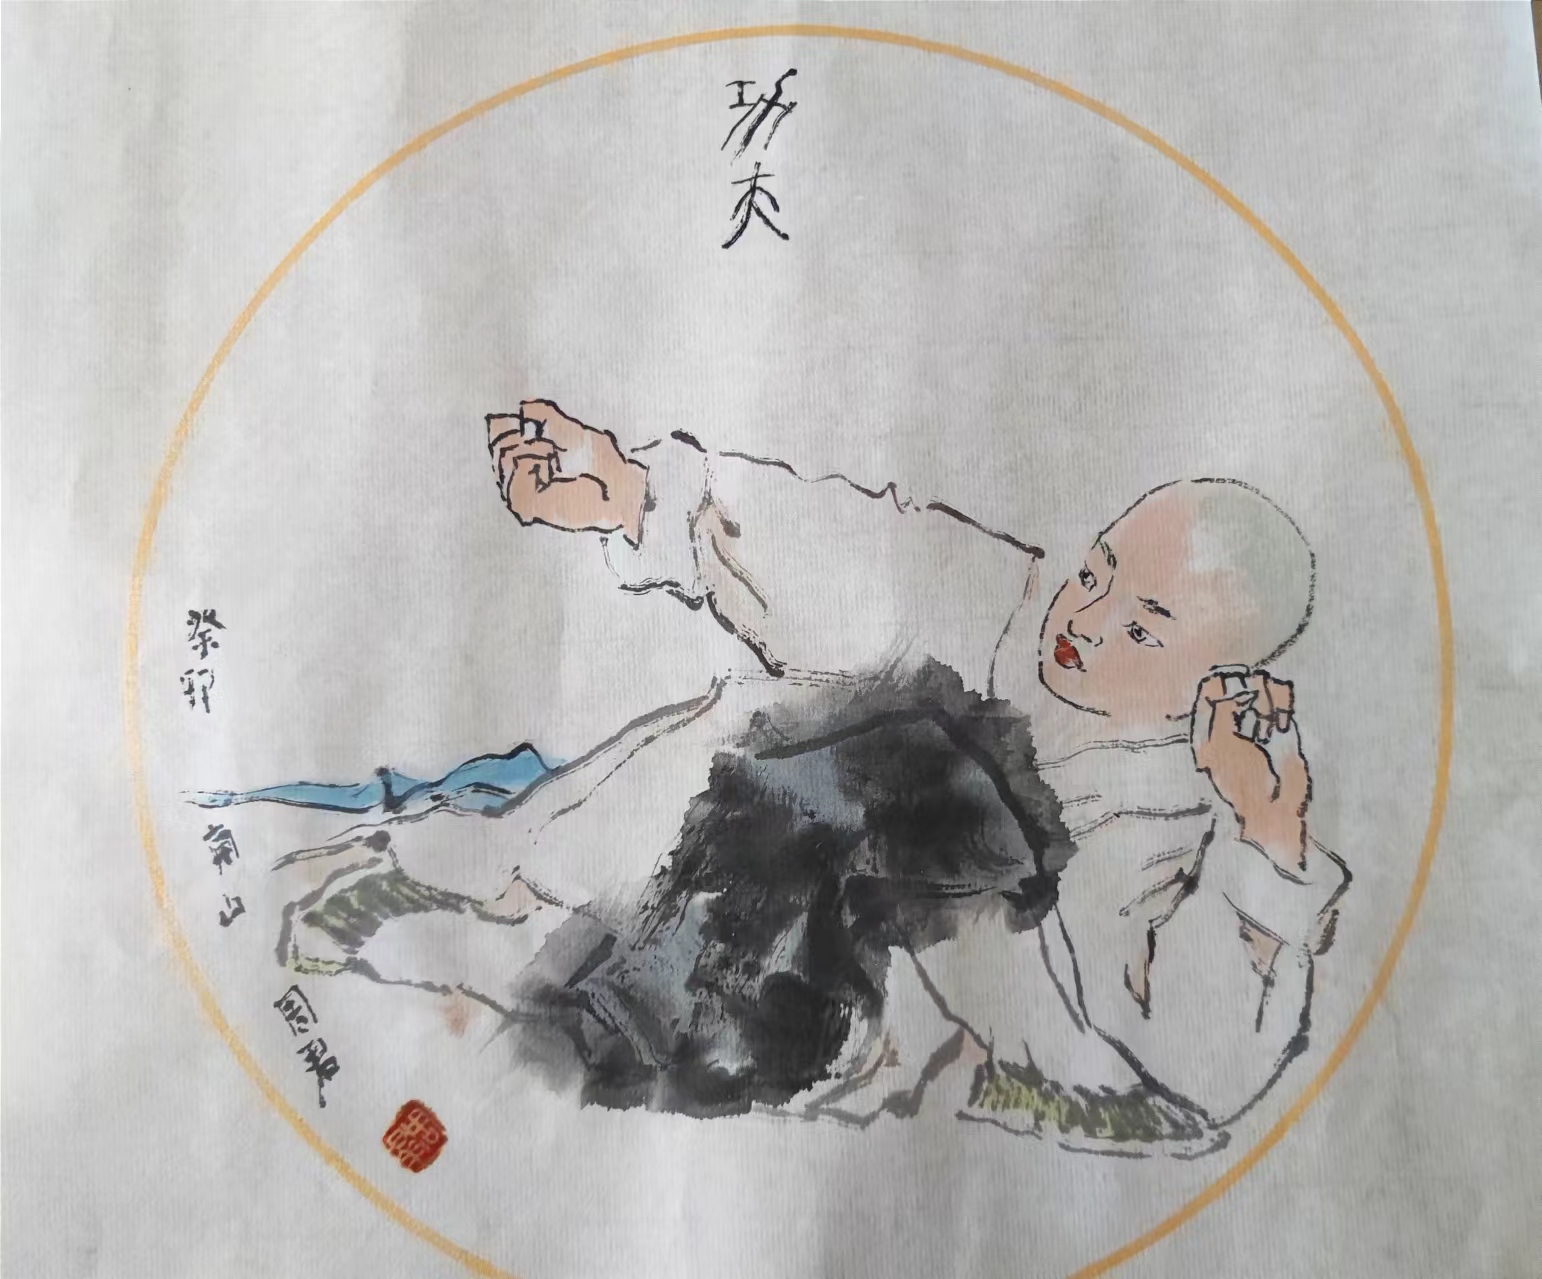 功夫
癸卯
南山
周君